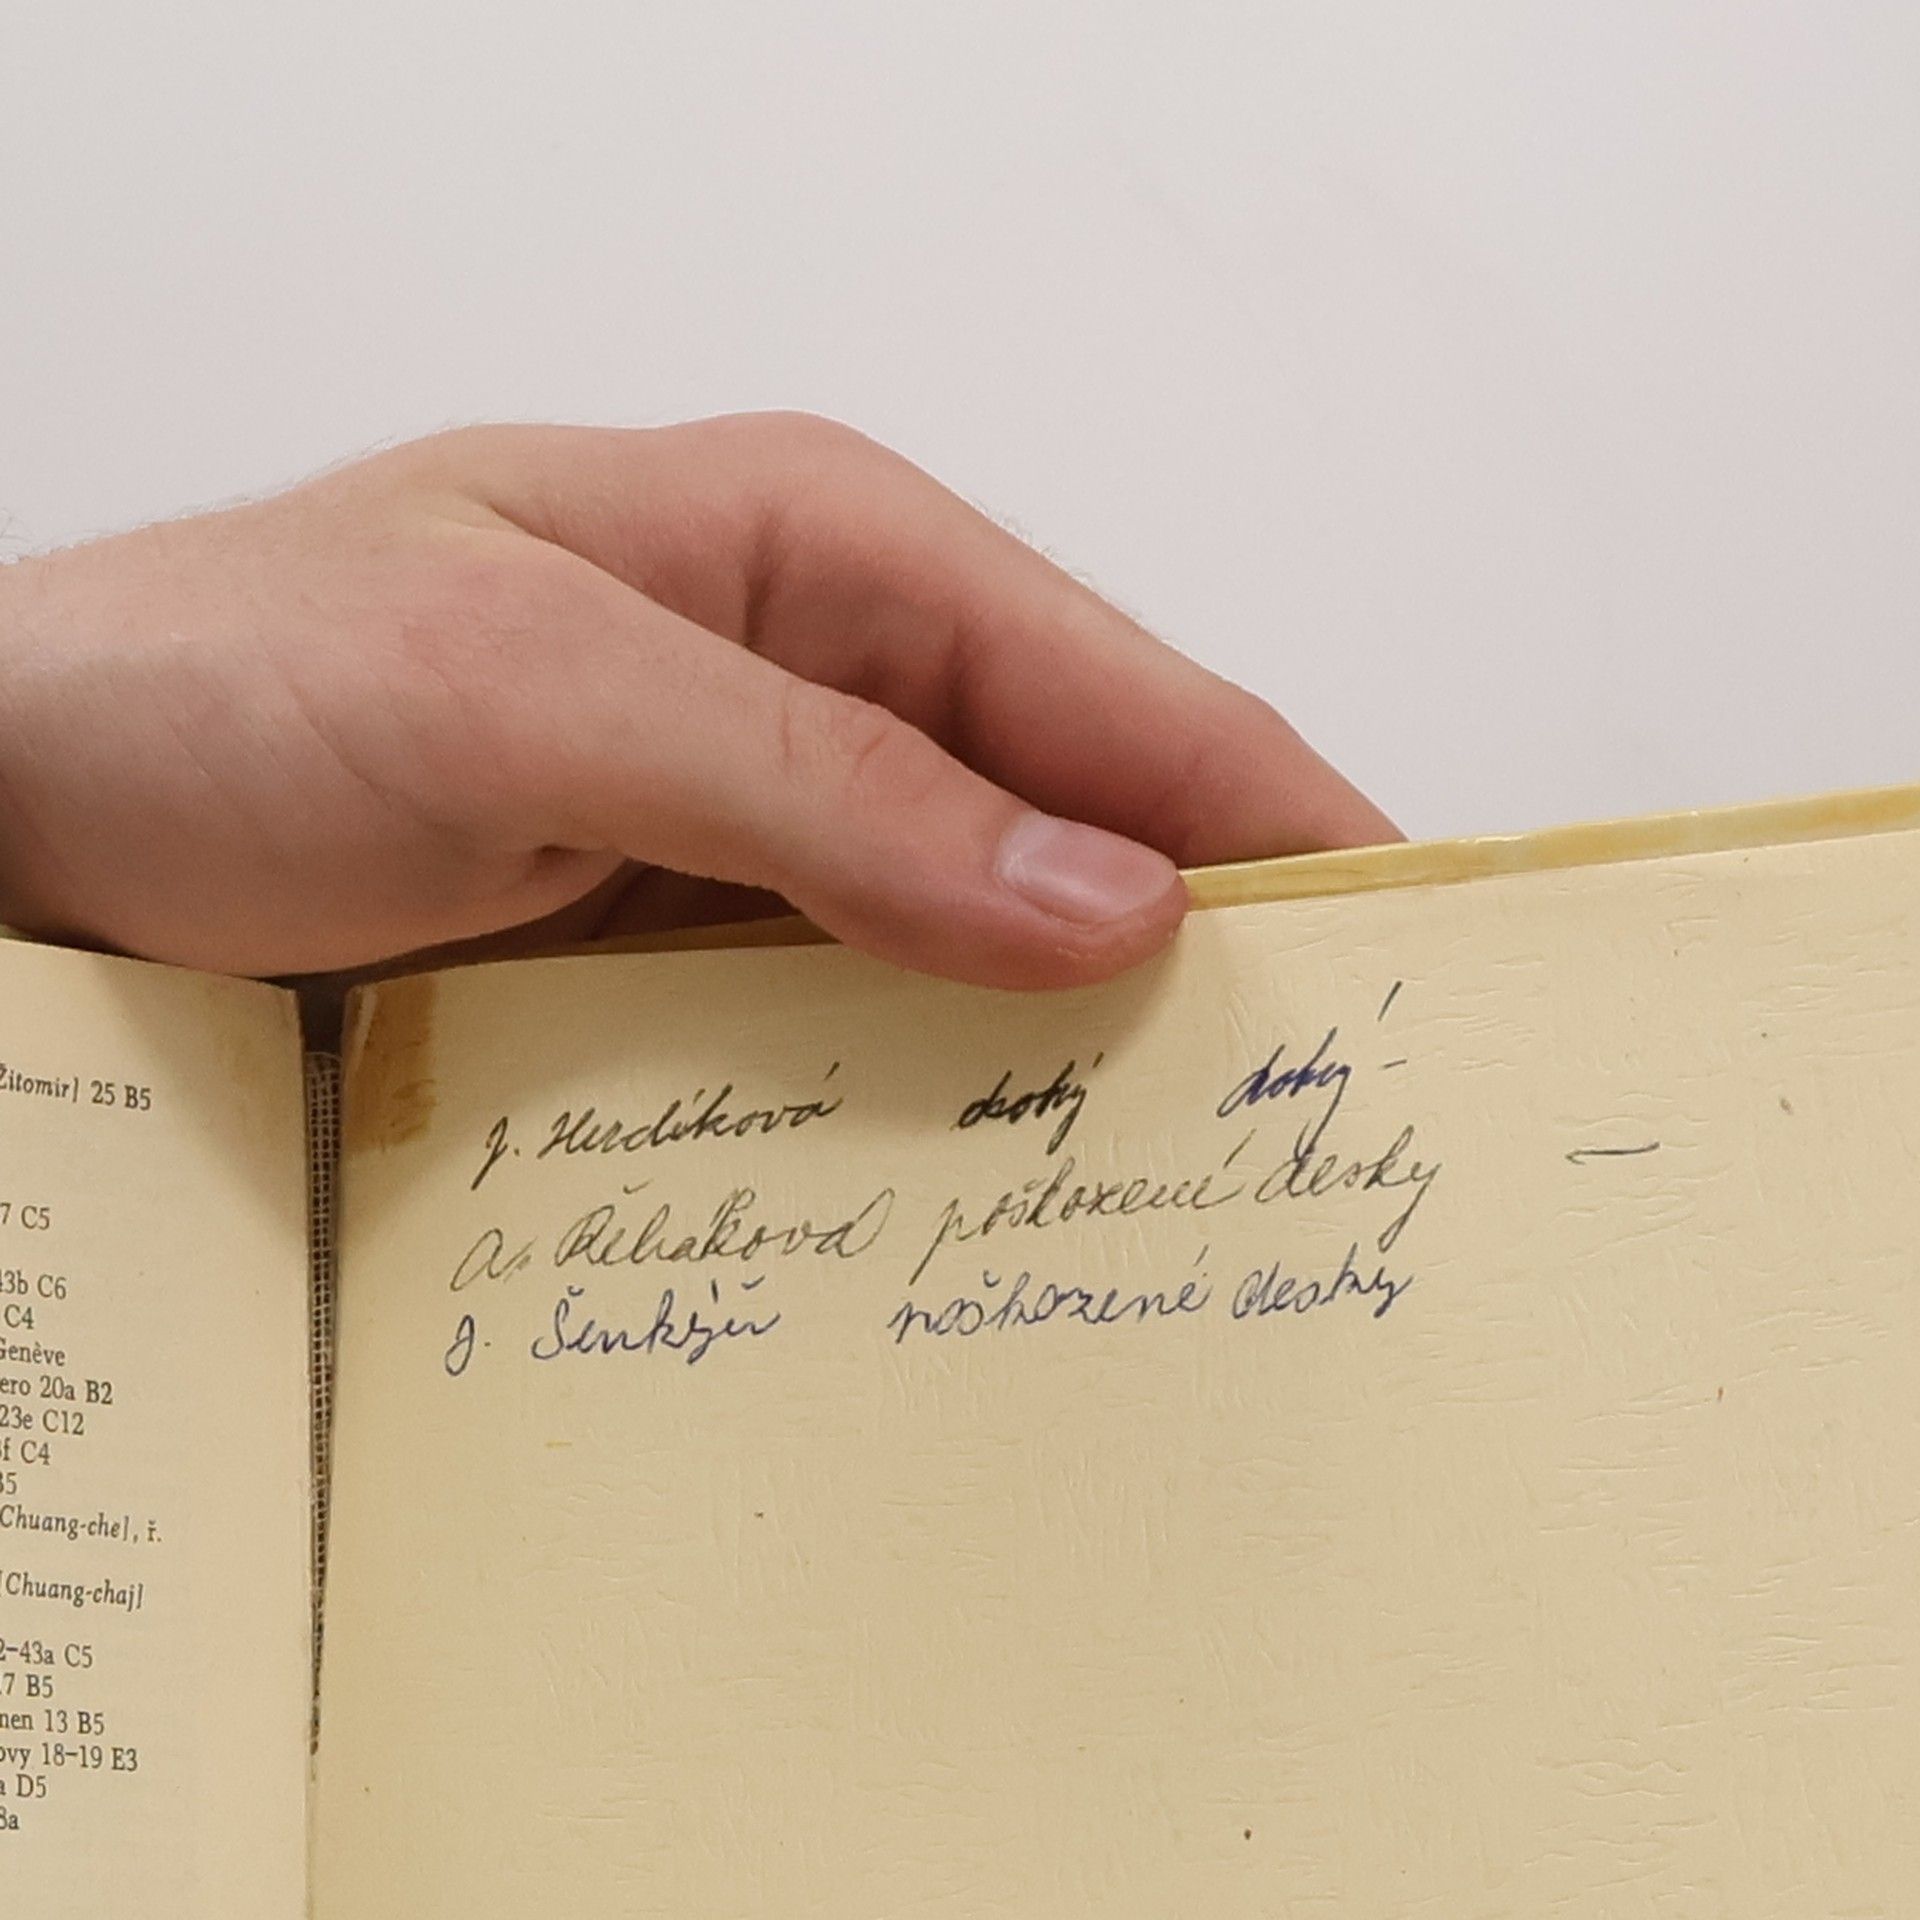 Žitomir] 25 B5
7 C5
43b C6
C4
Genève
ero 20a B2
23e C12
f C4
B5
Chuang-che], ř.
[Chuang-chaj]
2–43a C5
7 B5
nen 13 B5
ovy 18–19 E3
a D5
8a
J. Herdíková dobrý dobrý –
A. Řeháková poškozené desky –
J. Šenkýř poškozené desky